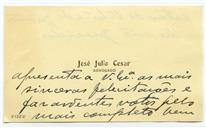 José Julio Cesar
ADVOGADO
apresenta a V. Exª. as mais
sinceras felicitações e
faz ardentes votos pelo
mais completo bem